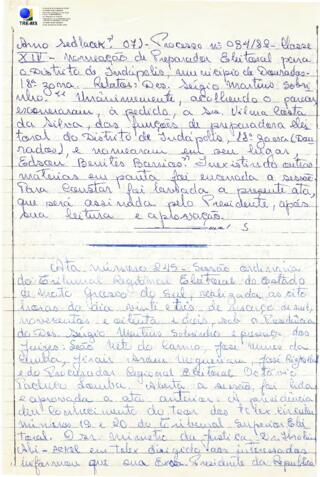 TRE-MS
Ano Sedlacek" 07)- Processo nº 034/88 - Classe
XIV - Nomeação de Preparador Eleitoral para
o Distrito de Indápolis, município de Dourados-
18ª zona. Relator: Des. Sérgio Martins Sobri-
nho. Unânimemente, acolhendo o parecer
exoneraram, a pedido, a Sra. Vilma Costa
da Silva, das funções de preparadora elei-
toral do Distrito de Indápolis, 18ª zona (Dou-
rados), e nomearam em seu lugar,
Edson Benites Barrios. Inexistindo outras
matérias em pauta foi encerrada a sessão.
Para Constar foi lavrada a presente ata,
que será assinada pelo Presidente, após
sua leitura e aprovação.
Ata número 245 - Sessão ordinária
do Tribunal Regional Eleitoral do Estado
de Mato Grosso do Sul, realizada às oito
horas do dia vinte e três de março de mil,
novecentos e oitenta e oito, sob a Presidência
do Des. Sérgio Martins Sobrinho e presença dos
Juízes: José Neto do Carmo, José Nunes da
Cunha,
e do Procurador Regional Eleitoral Octávio
Pacheco Lomba. Aberta a sessão, foi lida
e aprovada a ata anterior. A presidência
deu conhecimento do teor dos telex circular
números 19 e 20 do Tribunal Superior Elei-
toral. O Sr. Ministro da Justiça, Dr.
Abi-Ackel em telex dirigido aos interessados
informou que sua Exca. Presidente da República